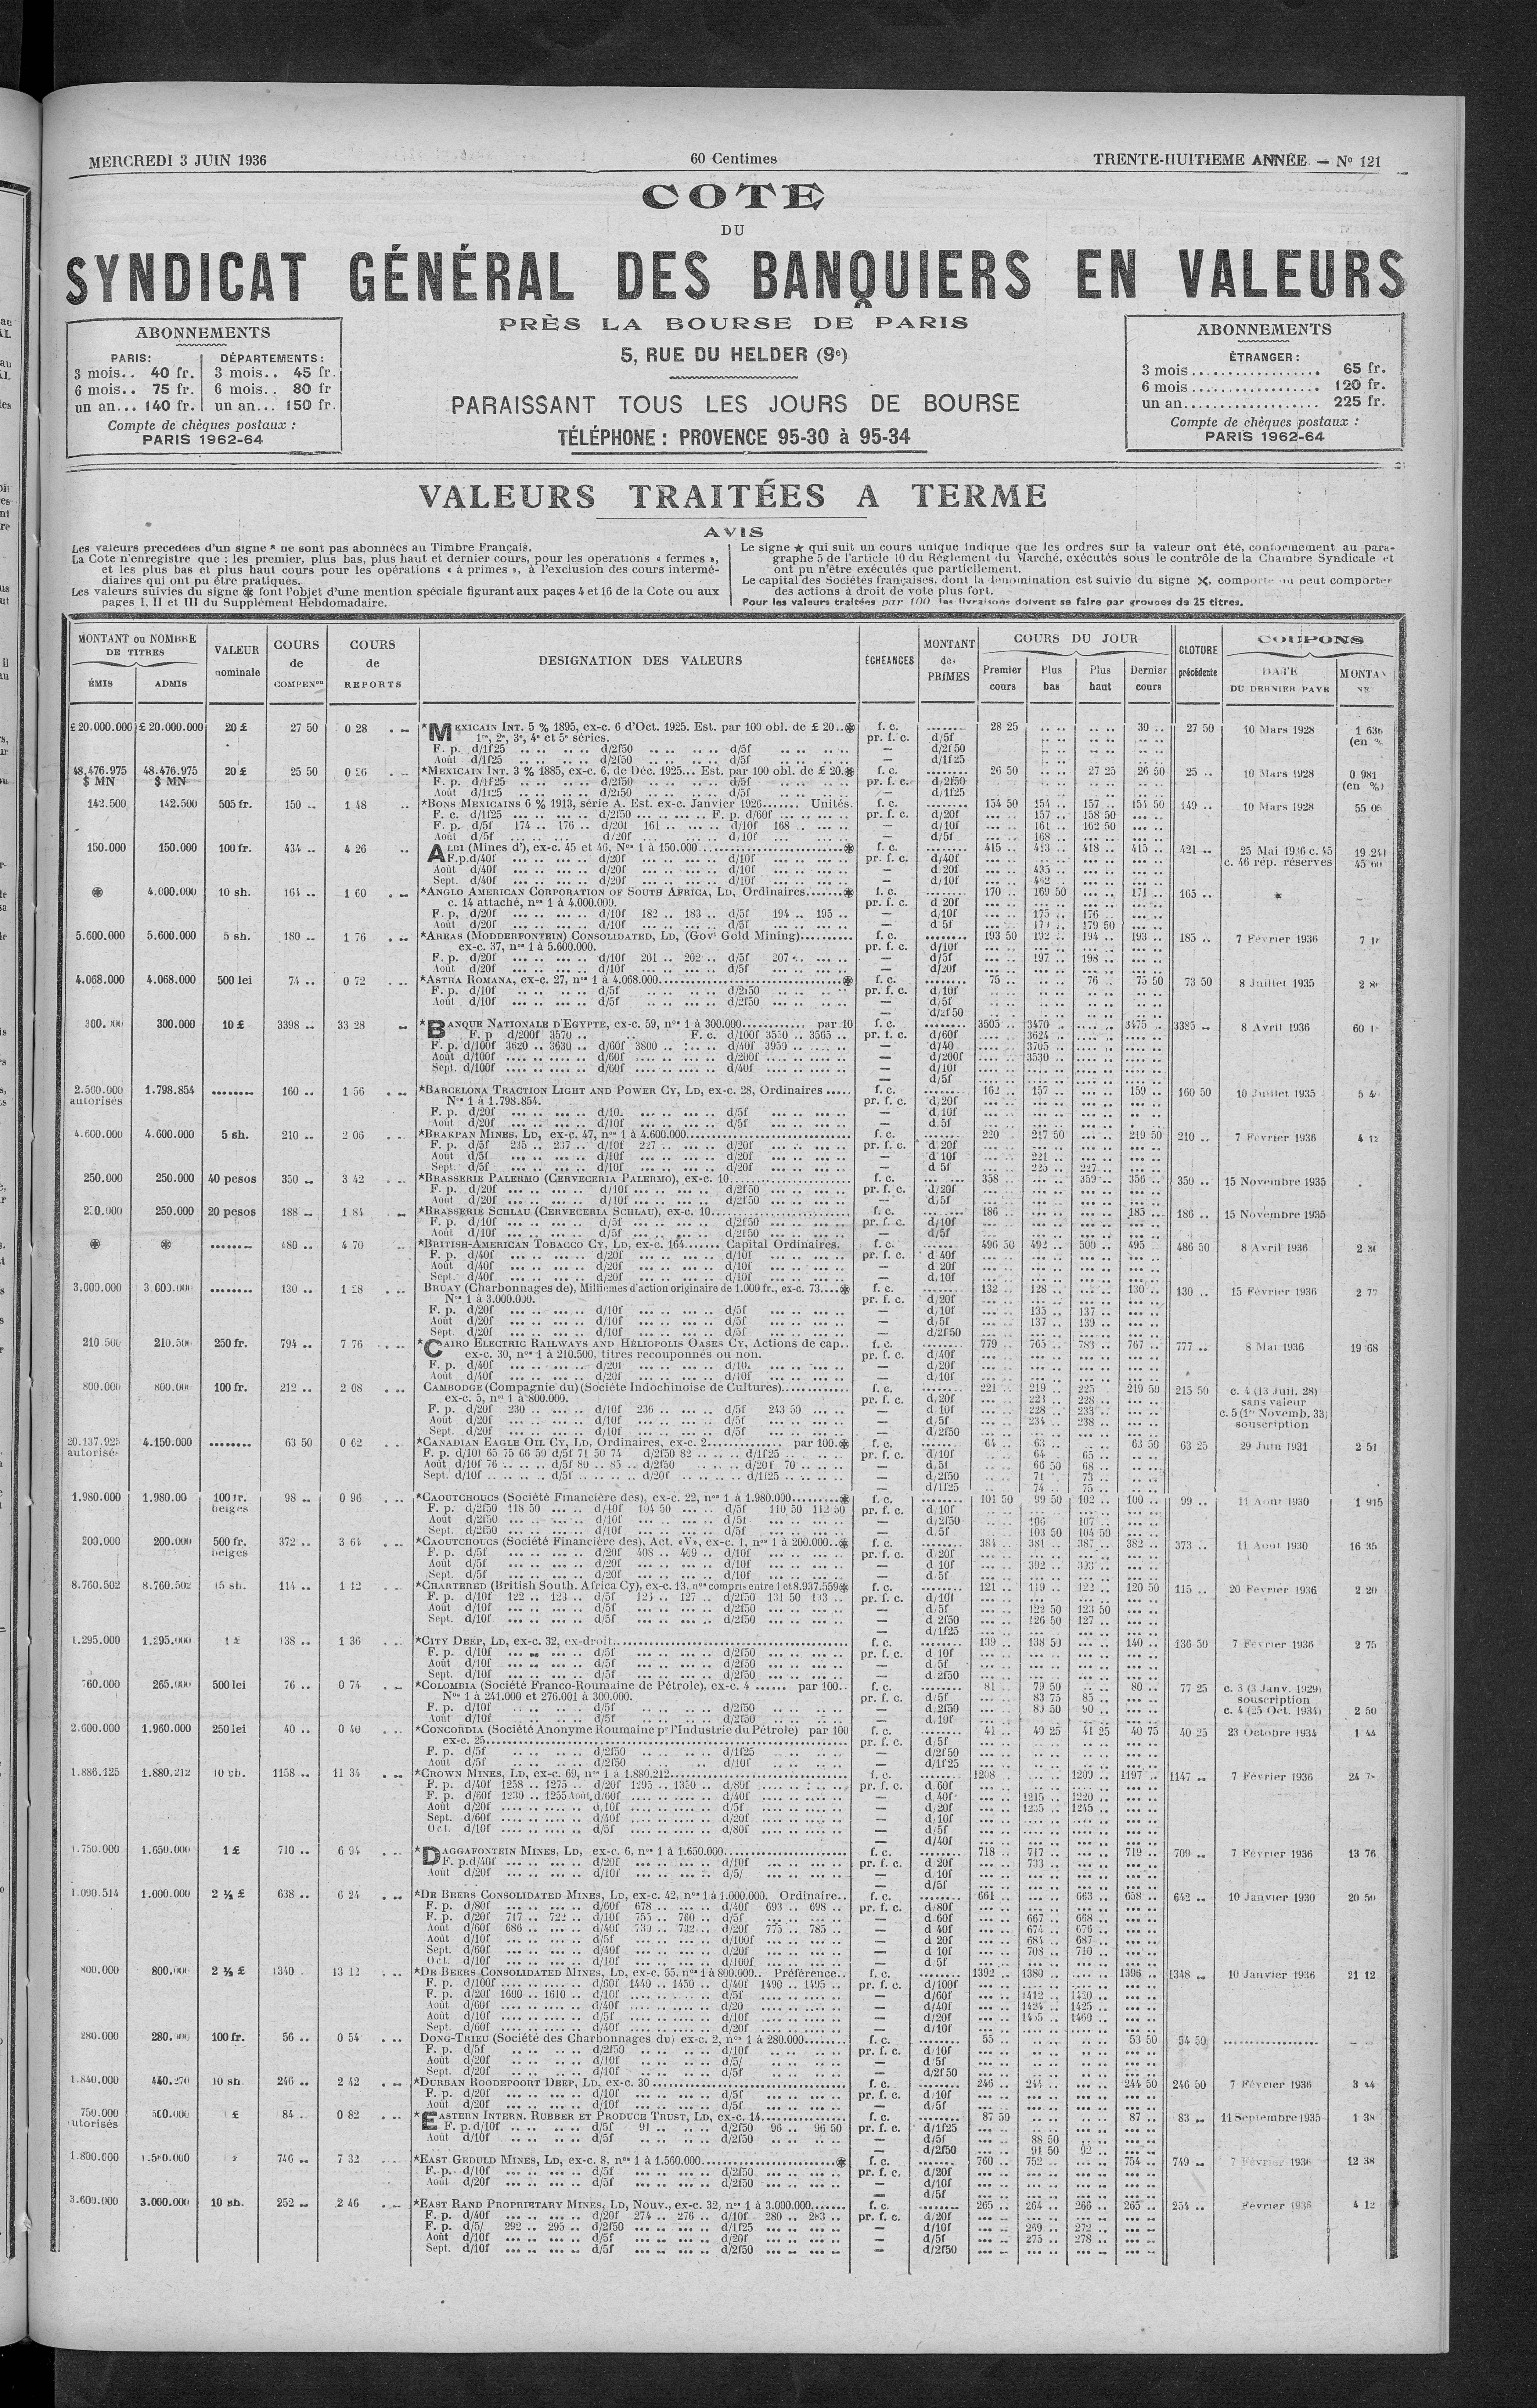 MERCREDI 3 JUIN 1936
60 Centimes
TRENTE-HUITIEME ANNÉE — Nº 121
COTE
DU
SYNDICAT GÉNÉRAL DES BANQUIERS EN VALEURS
PRÈS LA BOURSE DE PARIS
5, RUE DU HELDER (9e)
PARAISSANT TOUS LES JOURS DE BOURSE
TÉLÉPHONE : PROVENCE 95-30 à 95-34
ABONNEMENTS
PARIS: DÉPARTEMENTS:
3 mois.. 40 fr. 3 mois.. 45 fr.
6 mois.. 75 fr. 6 mois.. 80 fr
un an... 140 fr. un an... 150 fr.
Compte de chèques postaux :
PARIS 1962-64
ABONNEMENTS
ÉTRANGER :
3 mois 65 fr.
6 mois 120 fr.
un an 225 fr.
Compte de chèques postaux :
PARIS 1962-64
VALEURS TRAITÉES A TERME
AVIS
Les valeurs precedees d'un signe * ne sont pas abonnées au Timbre Français.
La Cote n'enregistre que : les premier, plus bas, plus haut et dernier cours, pour les operations « fermes »,
et les plus bas et plus haut cours pour les opérations « à primes », à l'exclusion des cours intermé-
diaires qui ont pu être pratiqués.
Les valeurs suivies du signe ⊛ font l'objet d'une mention spéciale figurant aux pages 4 et 16 de la Cote ou aux
pages I, II et III du Supplément Hebdomadaire.
Le signe ★ qui suit un cours unique indique que les ordres sur la valeur ont été, conformement au para-
graphe 5 de l'article 10 du Règlement du Marché, exécutés sous le contrôle de la Chambre Syndicale et
ont pu n'être exécutés que partiellement.
Le capital des Sociétés françaises, dont la dénomination est suivie du signe ✕, comporte ou peut comporter
des actions à droit de vote plus fort.
Pour les valeurs traitées par 100 les livraisons doivent se faire par groupes de 25 titres.
MONTANT ou NOMBRE DE TITRES
ÉMIS ADMIS
VALEUR nominale
COURS de COMPENon
COURS de REPORTS
DESIGNATION DES VALEURS
ÉCHÉANCES
MONTANT des PRIMES
COURS DU JOUR
Premier cours Plus bas Plus haut Dernier cours
CLOTURE précédente
COUPONS
DATE DU DERNIER PAYÉ
£ 20.000.000 £ 20.000.000 20 £ 27 50 0 28 *MEXICAIN INT. 5 % 1895, ex-c. 6 d'Oct. 1925. Est. par 100 obl. de £ 20..⊛ f. c. 28 25 30 .. 27 50 10 Mars 1928 1 636
1re, 2e, 3e, 4e et 5e séries. pr. f. c. d/5f
F. p. d/1f25 d/2f50 d/5f — d/2f50
Août d/1f25 d/2f50 d/5f — d/1f25
48.476.975 48.476.975 20 £ 25 50 0 26 *MEXICAIN INT. 3 % 1885, ex-c. 6, de Déc. 1925... Est. par 100 obl. de £ 20.⊛ f. c. 26 50 27 25 26 50 25 .. 10 Mars 1928 0 981
$ MN $ MN F. p. d/1f25 d/2f50 d/5f pr. f. c. d/2f50
142.500 142.500 505 fr. 150 .. 1 48 *BONS MEXICAINS 6 % 1913, série A. Est. ex-c. Janvier 1926 Unités. f. c. 154 50 154 .. 157 .. 154 50 149 .. 10 Mars 1928
F. c. d/1f25 d/2f50 F. p. d/60f pr. f. c. d/20f 157 .. 158 50
F. p. d/5f 174 .. 176 .. d/20f 161 .. d/10f 168 .. — d/10f 161 .. 162 50
Août d/5f d/20f d/10f — d/5f 168 ..
150.000 150.000 100 fr. 434 .. 4 26 ALBI (Mines d'), ex-c. 45 et 46, Nos 1 à 150.000 ⊛ f. c. 415 .. 413 .. 418 .. 415 .. 421 .. 25 Mai 1936 c. 45 19 241
F.p. d/40f d/20f d/10f pr. f. c. d/40f c. 46 rép. réserves
Août d/40f d/20f d/10f — d/20f 435 ..
Sept. d/40f d/20f d/10f — d/10f
⊛ 4.000.000 10 sh. 164 .. 1 60 *ANGLO AMERICAN CORPORATION OF SOUTH AFRICA, LD, Ordinaires ⊛ f. c. 170 .. 169 50 171 .. 165 ..
c. 14 attaché, nos 1 à 4.000.000. pr. f. c. d/20f
F. p. d/20f d/10f 182 .. 183 .. d/5f 194 .. 195 .. — d/10f 175 .. 176 ..
Août d/20f d/10f d/5f — d/5f 179 50
5.600.000 5.600.000 5 sh. 180 .. 1 76 *AREAS (MODDERFONTEIN) CONSOLIDATED, LD, (Govt Gold Mining) f. c. 193 50 192 .. 194 .. 193 .. 185 .. 7 Février 1936
ex-c. 37, nos 1 à 5.600.000. pr. f. c. d/10f
F. p. d/20f d/10f 201 .. 202 .. d/5f 207 .. — d/5f 197 .. 198 ..
Août d/20f d/10f d/5f — d/20f
4.068.000 4.068.000 500 lei 74 .. 0 72 *ASTRA ROMANA, ex-c. 27, nos 1 à 4.068.000 ⊛ f. c. 75 .. 76 .. 75 50 73 50 8 Juillet 1935
F. p. d/10f d/5f d/2f50 pr. f. c. d/10f
Août d/10f d/5f d/2f50 — d/5f
300.000 300.000 10 £ 3398 .. 33 28 *BANQUE NATIONALE D'EGYPTE, ex-c. 59, nos 1 à 300.000 par 10 f. c. 3505 .. 3470 .. 3475 .. 3385 .. 8 Avril 1936
F. p. d/200f 3570 .. F. c. d/100f 3550 .. 3565 .. pr. f. c. d/60f 3624
F. p. d/100f 3620 .. 3630 .. d/60f 3800 .. d/40f 3950 .. — d/40 3705 ..
Août d/100f d/60f d/200f — d/200f 3530 ..
Sept. d/100f d/60f d/40f — d/10f
— d/5f
2.500.000 autorisés 1.798.854 160 .. 1 56 *BARCELONA TRACTION LIGHT AND POWER CY, LD, ex-c. 28, Ordinaires f. c. 162 .. 157 .. 159 .. 160 50 10 Juillet 1935
Nos 1 à 1.798.854. pr. f. c. d/20f
F. p. d/20f d/10f d/5f — d/10f
Août d/20f d/10f d/5f — d/5f
4.600.000 4.600.000 5 sh. 210 .. 2 06 *BRAKPAN MINES, LD, ex-c. 47, nos 1 à 4.600.000 f. c. 220 .. 217 50 219 50 210 .. 7 Février 1936 4 12
F. p. d/5f 235 .. 237 .. d/10f 227 .. d/20f pr. f. c. d/20f
Août d/5f d/10f d/20f — d/10f 221 ..
Sept. d/5f d/10f d/20f — d/5f 225 .. 227 ..
250.000 250.000 40 pesos 350 .. 3 42 *BRASSERIE PALERMO (CERVECERIA PALERMO), ex-c. 10 f. c. 358 .. 359 .. 356 .. 350 .. 15 Novembre 1935
F. p. d/20f d/10f d/2f50 pr. f. c. d/20f
Août d/20f d/10f d/2f50 — d/5f
250.000 250.000 20 pesos 188 .. 1 84 *BRASSERIE SCHLAU (CERVECERIA SCHLAU), ex-c. 10 f. c. 186 .. 185 .. 186 .. 15 Novembre 1935
F. p. d/10f d/5f d/2f50 pr. f. c. d/10f
Août d/10f d/5f d/2f50 — d/5f
⊛ ⊛ 480 .. 4 70 *BRITISH-AMERICAN TOBACCO CY, LD, ex-c. 164 Capital Ordinaires. f. c. 496 50 492 .. 500 .. 495 .. 486 50 8 Avril 1936
F. p. d/40f d/20f d/10f pr. f. c. d/40f
Août d/40f d/20f d/10f — d/20f
Sept. d/40f d/20f d/10f — d/10f
3.000.000 3.000.000 130 .. 1 28 BRUAY (Charbonnages de), Millièmes d'action originaire de 1.000 fr., ex-c. 73 ⊛ f. c. 132 .. 128 .. 130 .. 130 .. 15 Février 1936 2 77
Nos 1 à 3.000.000. pr. f. c. d/20f
F. p. d/20f d/10f d/5f — d/10f 135 .. 137 ..
Août d/20f d/10f d/5f — d/5f 137 .. 139 ..
Sept. d/20f d/10f d/5f — d/2f50
210 500 210.500 250 fr. 794 .. 7 76 *CAIRO ELECTRIC RAILWAYS AND HELIOPOLIS OASES CY, Actions de cap.. f. c. 779 .. 765 .. 783 .. 767 .. 777 .. 8 Mai 1936 19 68
ex-c. 30, nos 1 à 210.500, titres recouponnés ou non. pr. f. c. d/40f
F. p. d/40f d/20f d/10f — d/20f
Août d/40f d/20f d/10f — d/10f
800.000 800.000 100 fr. 212 .. 2 08 CAMBODGE (Compagnie du) (Société Indochinoise de Cultures) f. c. 221 .. 219 .. 225 219 50 215 50 c. 4 (13 Juil. 28)
ex-c. 5, nos 1 à 800.000. pr. f. c. d/20f 223 .. 228 .. sans valeur
F. p. d/20f 230 .. d/10f 236 .. d/5f 243 50 — d/10f 228 .. 233 .. c. 5 (1er Novemb. 33)
Août d/20f d/10f d/5f — d/5f 234 .. 238 .. souscription
Sept. d/20f d/10f d/5f — d/2f50
20.137.925 autorisés 4.150.000 63 50 0 62 *CANADIAN EAGLE OIL CY, LD, Ordinaires, ex-c. 2 par 100.⊛ f. c. 64 .. 63 .. 63 50 63 25 29 Juin 1931 2 51
F. p. d/10f 65 75 66 50 d/5f 71 50 74 .. d/2f50 82 .. d/1f25 pr. f. c. d/10f 64 .. 65 ..
Août d/10f 76 .. d/5f 80 .. 85 .. d/2f50 d/20f 70 .. — d/5f 66 50 68 ..
Sept. d/10f d/5f d/20f d/1f25 — d/2f50 71 73 ..
— d/1f25 74 .. 75 ..
1.980.000 1.980.00 100 fr. belges 98 .. 0 96 *CAOUTCHOUCS (Société Financière des), ex-c. 22, nos 1 à 1.980.000 ⊛ f. c. 101 50 99 50 102 .. 100 .. 99 .. 11 Août 1930 1 915
F. p. d/2f50 118 50 d/10f 104 50 d/5f 110 50 112 50 pr. f. c. d/10f
Août d/2f50 d/10f d/5f — d/2f50 106 107 ..
Sept. d/2f50 d/10f d/5f — d/5f 103 50 104 50
200.000 200.000 500 fr. belges 372 .. 3 64 *CAOUTCHOUCS (Société Financière des), Act. «V», ex-c. 1, nos 1 à 200.000..⊛ f. c. 384 .. 381 .. 387 .. 382 .. 373 .. 11 Août 1930 16 35
F. p. d/5f d/20f 408 .. 409 .. d/10f pr. f. c. d/20f
Août d/5f d/20f d/10f — d/10f 392 .. 393 ..
Sept. d/5f d/20f d/10f — d/5f
8.760.502 8.760.502 15 sh. 114 .. 1 12 *CHARTERED (British South. Africa Cy), ex-c. 13, nos compris entre 1 et 8.937.559⊛ f. c. 121 .. 119 .. 122 .. 120 50 115 .. 20 Février 1936 2 20
F. p. d/10f 122 .. 123 .. d/5f 125 .. 127 .. d/2f50 131 50 133 .. pr. f. c. d/10f
Août d/10f d/5f d/2f50 — d/5f 122 50 123 50
Sept. d/10f d/5f d/2f50 — d/2f50 126 50 127 ..
— d/1f25
1.295.000 1.295.000 1 £ 138 .. 1 36 *CITY DEEP, LD, ex-c. 32, ex-droit f. c. 139 .. 138 50 140 .. 136 50 7 Février 1936 2 75
F. p. d/10f d/5f d/2f50 pr. f. c. d/10f
Août d/10f d/5f d/2f50 — d/5f
Sept. d/10f d/5f d/2f50 — d/2f50
265.000 500 lei 76 .. 0 74 *COLOMBIA (Société Franco-Roumaine de Pétrole), ex-c. 4 par 100.. f. c. 81 .. 79 50 80 .. 77 25 c. 3 (3 Janv. 1929)
Nos 1 à 241.000 et 276.001 à 300.000. pr. f. c. d/5f 83 75 85 .. souscription
F. p. d/10f d/5f d/2f50 — d/2f50 89 50 90 .. c. 4 (25 Oct. 1934) 2 50
Août d/10f d/5f d/2f50 — d/10f
2.600.000 1.960.000 250 lei 40 .. 0 40 *CONCORDIA (Société Anonyme Roumaine pr l'Industrie du Pétrole) par 100 f. c. 41 .. 40 25 41 25 40 75 40 25 23 Octobre 1934 1 44
ex-c. 25 pr. f. c. d/5f
F. p. d/5f d/2f50 d/1f25 — d/2f50
Août d/5f d/2f50 d/10f — d/1f25
1.886.125 1.880.212 10 sh. 1158 .. 11 34 *CROWN MINES, LD, ex-c. 69, nos 1 à 1.880.212 f. c. 1208 .. 1209 .. 1197 .. 1147 .. 7 Février 1936
F. p. d/40f 1258 .. 1275 .. d/20f 1295 .. 1350 .. d/80f pr. f. c. d/60f
F. p. d/60f 1230 .. 1255 Août d/60f d/40f — d/40f 1215 .. 1220 ..
Août d/20f d/10f d/5f — d/20f 1235 .. 1245 ..
Sept. d/60f d/40f d/20f — d/10f
Oct. d/10f d/5f d/80f — d/5f
— d/40f
1.750.000 1.650.000 1 £ 710 .. 6 94 *DAGGAFONTEIN MINES, LD, ex-c. 6, nos 1 à 1.650.000 f. c. 718 .. 717 .. 719 .. 709 .. 7 Février 1936 13 76
F. p. d/40f d/20f d/10f pr. f. c. d/20f 733 ..
Août d/20f d/10f d/5/ — d/10f
— d/5f
1.090.514 1.000.000 2 ½ £ 638 .. 6 24 *DE BEERS CONSOLIDATED MINES, LD, ex-c. 42, nos 1 à 1.000.000. Ordinaire.. f. c. 661 .. 663 .. 658 .. 642 .. 10 Janvier 1930 20 50
F. p. d/80f d/60f 678 .. d/40f 693 .. 698 .. pr. f. c. d/80f
F. p. d/20f 717 .. 722 .. d/10f 755 .. 760 .. d/5f — d/60f 667 .. 668 ..
Août d/60f 686 .. d/40f 730 .. 732 .. d/20f 775 .. 785 .. — d/40f 674 .. 676 ..
Août d/10f d/5f d/100f — d/20f 684 .. 687 ..
Sept. d/60f d/40f d/20f — d/10f 708 .. 710 ..
Oct. d/10f d/10f d/100f — d/5f
800.000 800.000 2 ½ £ 1340 .. 13 12 *DE BEERS CONSOLIDATED MINES, LD, ex-c. 55, nos 1 à 800.000.. Préférence.. f. c. 1392 .. 1380 .. 1396 .. 1348 .. 10 Janvier 1936 21 12
F. p. d/100f d/60f 1440 .. 1450 .. d/40f 1490 .. 1495 .. pr. f. c. d/100f
F. p. d/20f 1600 .. 1610 .. d/10f d/5f — d/60f 1412 .. 1420 ..
Août d/60f d/40f d/20 — d/40f 1424 .. 1425 ..
Août d/10f d/5f d/10f — d/20f 1455 .. 1460 ..
Sept. d/60f d/40f d/20f — d/10f
280.000 280.000 100 fr. 56 .. 0 54 DONG-TRIEU (Société des Charbonnages du) ex-c. 2, nos 1 à 280.000 f. c. 55 .. 53 50 54 50
F. p. d/5f d/2f50 d/10f pr. f. c. d/10f
Août d/20f d/10f d/5/ — d/5f
Sept. d/20f d/10f d/5f — d/2f50
1.840.000 440.270 10 sh. 246 .. 2 42 *DURBAN ROODEPOORT DEEP, LD, ex-c. 30 f. c. 246 .. 244 .. 244 50 246 50 7 Février 1936 3 44
F. p. d/20f d/10f d/5f pr. f. c. d/10f
Août d/20f d/10f d/5f — d/5f
750.000 autorisés 500.000 £ 84 .. 0 82 *EASTERN INTERN. RUBBER ET PRODUCE TRUST, LD, ex-c. 14 f. c. 87 50 87 .. 83 .. 11 Septembre 1935 1 38
F. p. d/10f d/5f 91 .. d/2f50 96 .. 96 50 pr. f. c. d/1f25
Août d/10f d/5f d/2f50 — d/5f 88 50
— d/2f50 91 50 92 ..
1.800.000 746 .. 7 32 *EAST GEDULD MINES, LD, ex-c. 8, nos 1 à 1.560.000 ⊛ f. c. 760 .. 752 .. 754 .. 749 .. 7 Février 1936 12 38
F. p. d/10f d/5f d/2f50 pr. f. c. d/20f
Août d/20f d/5f d/2f50 — d/10f
— d/5f
3.600.000 3.000.000 10 sh. 252 .. 2 46 *EAST RAND PROPRIETARY MINES, LD, Nouv., ex-c. 32, nos 1 à 3.000.000 f. c. 265 .. 264 .. 266 .. 265 .. 254 .. Février 1936 4 12
F. p. d/40f d/20f 274 .. 276 .. d/10f 280 .. 283 .. pr. f. c. d/20f
F. p. d/5/ 292 .. 295 .. d/2f50 d/1f25 — d/10f 269 .. 272 ..
Août d/10f d/5f d/20f — d/5f 275 .. 278 ..
Sept. d/10f d/5f d/2f50 — d/2f50